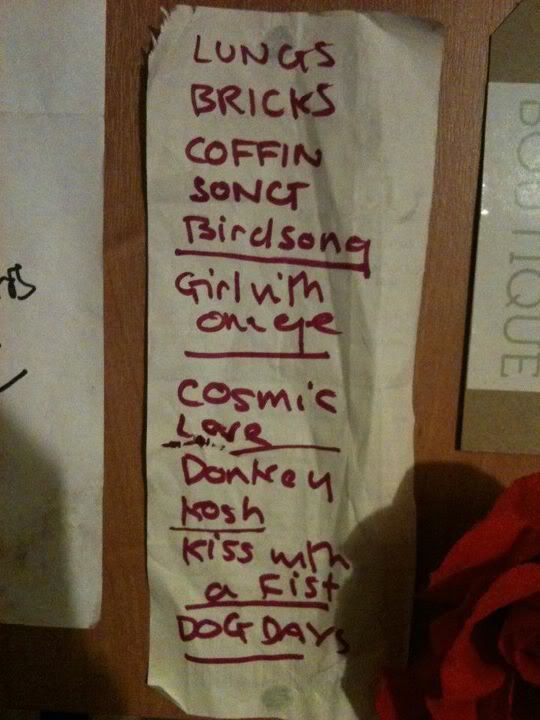 LUNGS
BRICKS
COFFIN
SONG
Birdsong
Girl with
one eye
COSMIC
Love
Donkey
Kosh
Kiss with
a Fist
DOG DAYS
BOUTIQUE